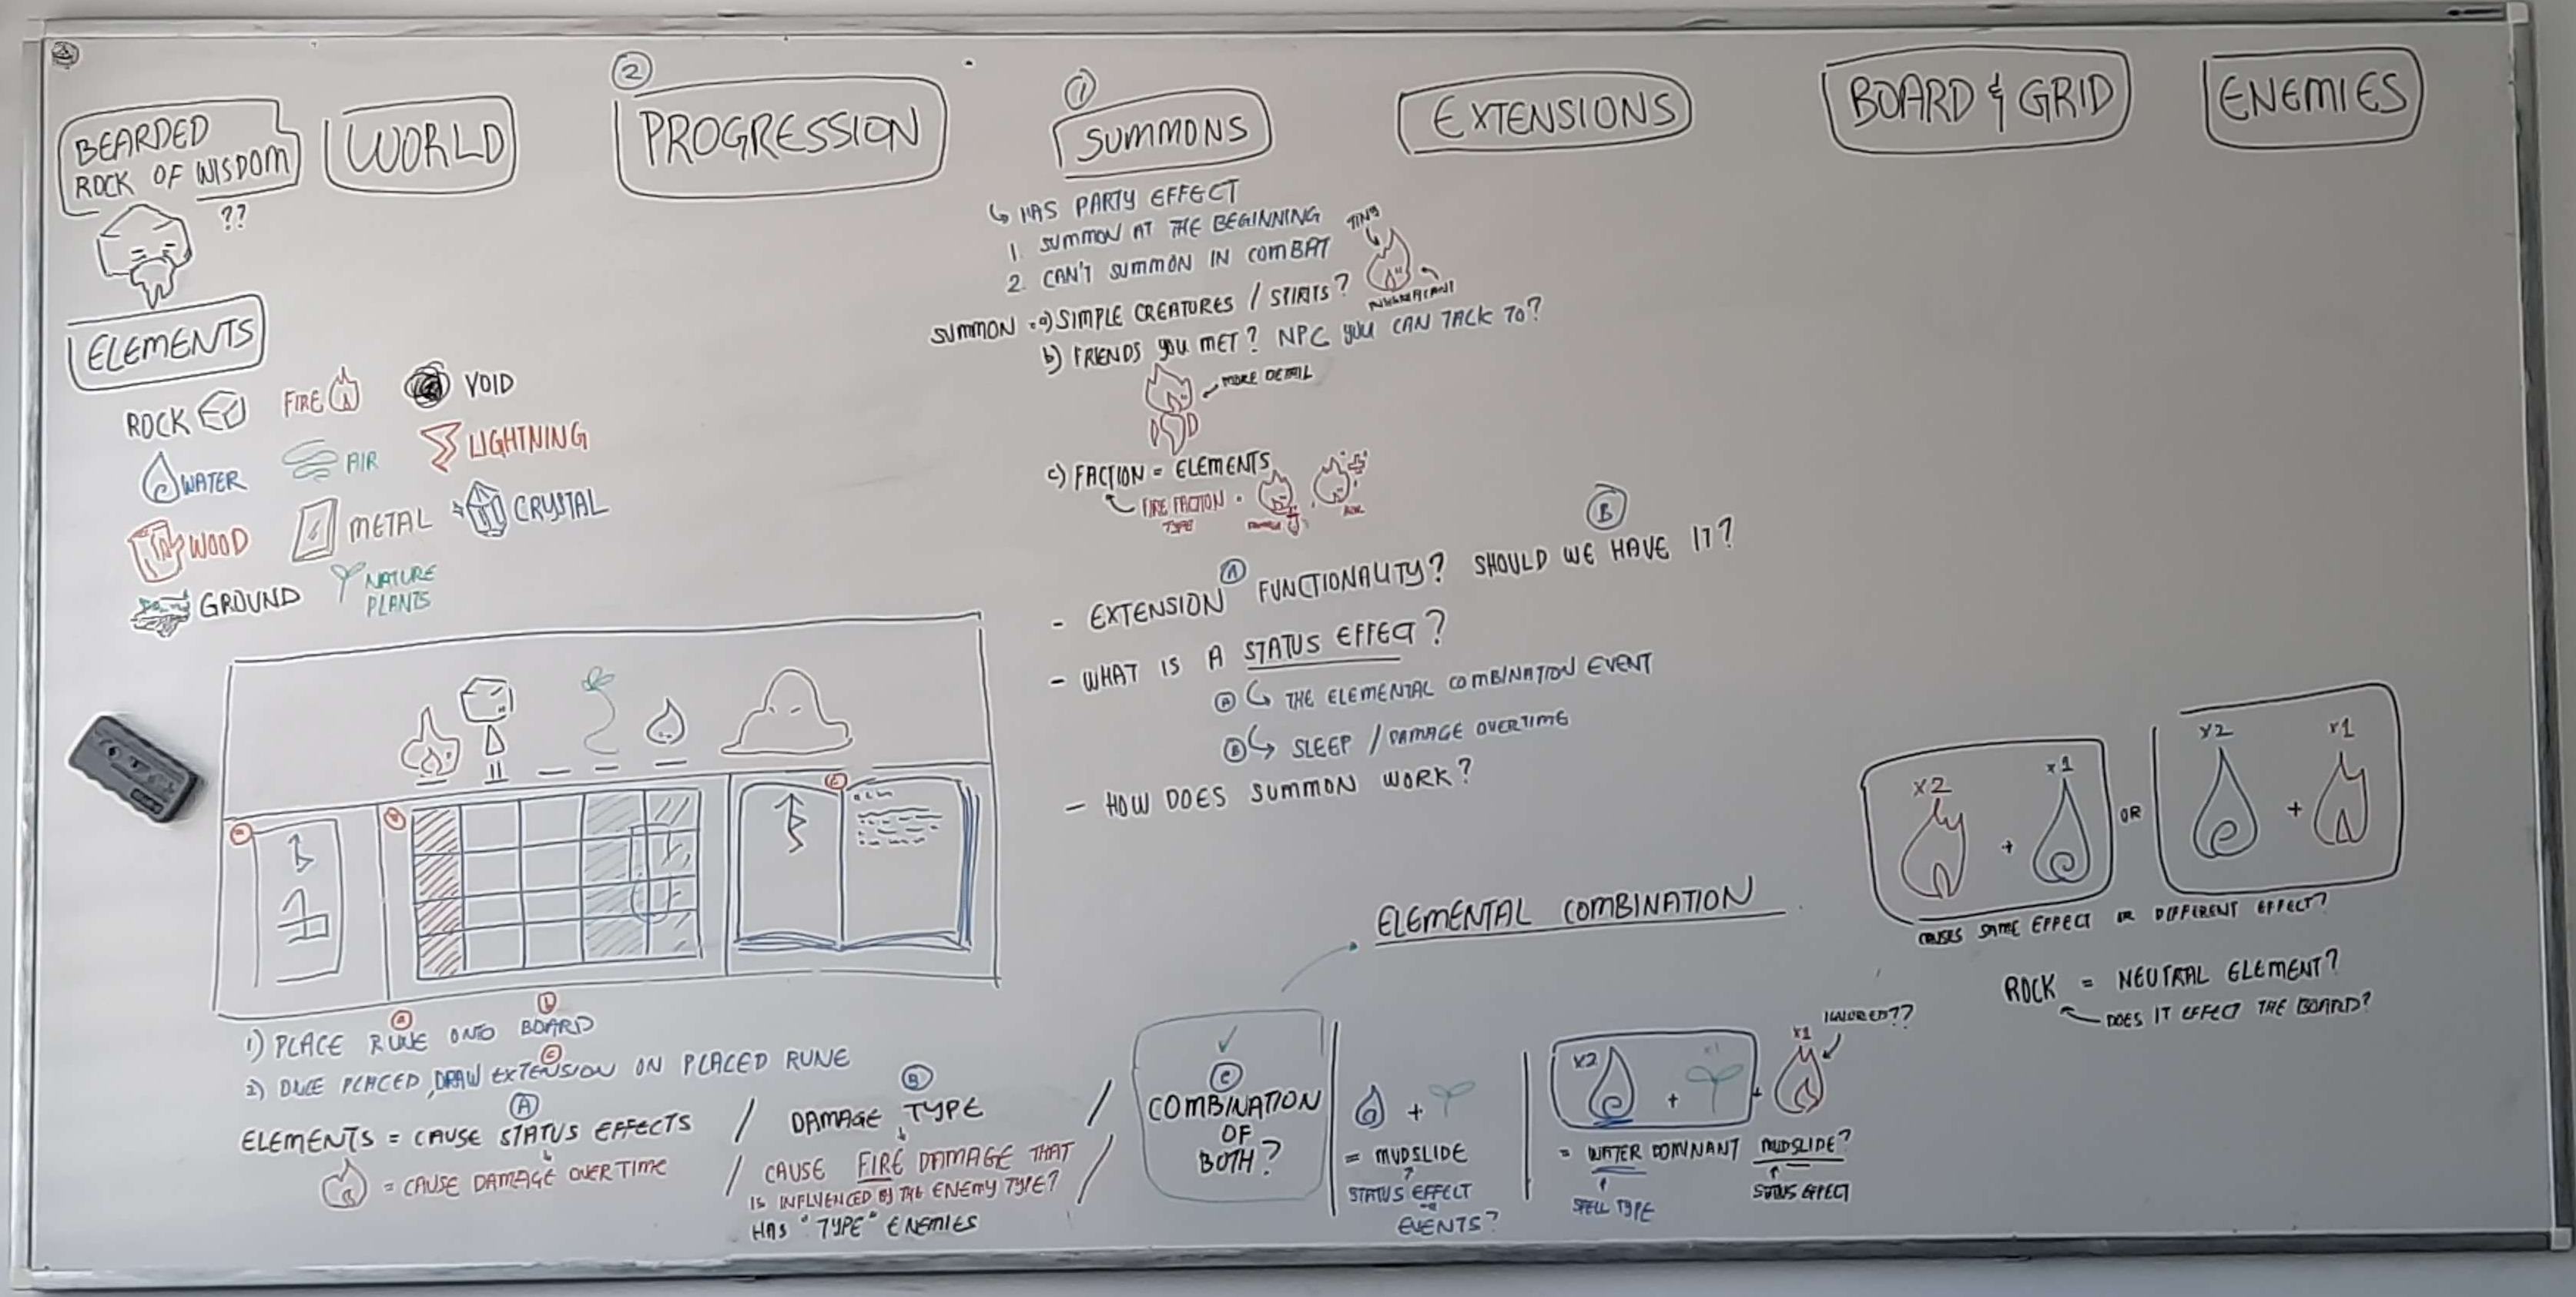 BEARDED
ROCK OF WISDOM
??
WORLD
②
PROGRESSION
①
SUMMONS
EXTENSIONS
BOARD & GRID
ENEMIES
↳ HAS PARTY EFFECT
1. SUMMON AT THE BEGINNING
2. CAN'T SUMMON IN COMBAT
TINY
SUMMON = a) SIMPLE CREATURES / SPIRITS?
b) FRIENDS YOU MET? NPC YOU CAN TALK TO?
MORE DETAIL
c) FACTION = ELEMENTS
FIRE FACTION =
TYPE
ELEMENTS
ROCK
FIRE
VOID
WATER
AIR
LIGHTNING
WOOD
METAL
CRYSTAL
GROUND
NATURE
PLANTS
Ⓐ Ⓑ
- EXTENSION FUNCTIONALITY? SHOULD WE HAVE IT?
- WHAT IS A STATUS EFFECT?
Ⓐ ↳ THE ELEMENTAL COMBINATION EVENT
Ⓑ ↳ SLEEP / DAMAGE OVERTIME
- HOW DOES SUMMON WORK?
ⓐ ⓑ
1) PLACE RUNE ONTO BOARD
ⓒ
2) ONCE PLACED, DRAW EXTENSION ON PLACED RUNE
Ⓐ
ELEMENTS = CAUSE STATUS EFFECTS /
= CAUSE DAMAGE OVER TIME /
Ⓑ
DAMAGE TYPE /
CAUSE FIRE DAMAGE THAT
IS INFLUENCED BY THE ENEMY TYPE? /
HAS "TYPE" ENEMIES
✓
Ⓒ
COMBINATION
OF
BOTH?
ELEMENTAL COMBINATION
+
= MUDSLIDE
STATUS EFFECT
EVENTS?
x2
+
x1
+
x1
IGNORED??
= WATER DOMINANT MUDSLIDE?
SPELL TYPE
STATUS EFFECT
x2 + x1
OR
x2 + x1
CAUSES SAME EFFECT OR DIFFERENT EFFECT?
ROCK = NEUTRAL ELEMENT?
DOES IT EFFECT THE BOARD?